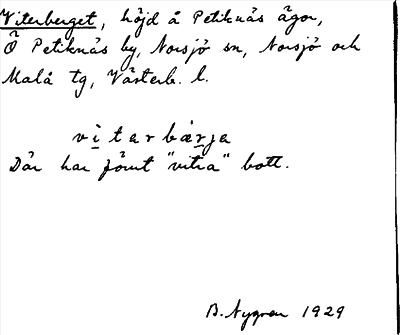 Viterberget, höjd å Petiknäs ägor,
Ö Petiknäs by, Norsjö sn, Norsjö och
Malå tg, Västerb. l.
vitarbärja
Där har förut "vitra" bott.
B. Nygren 1929